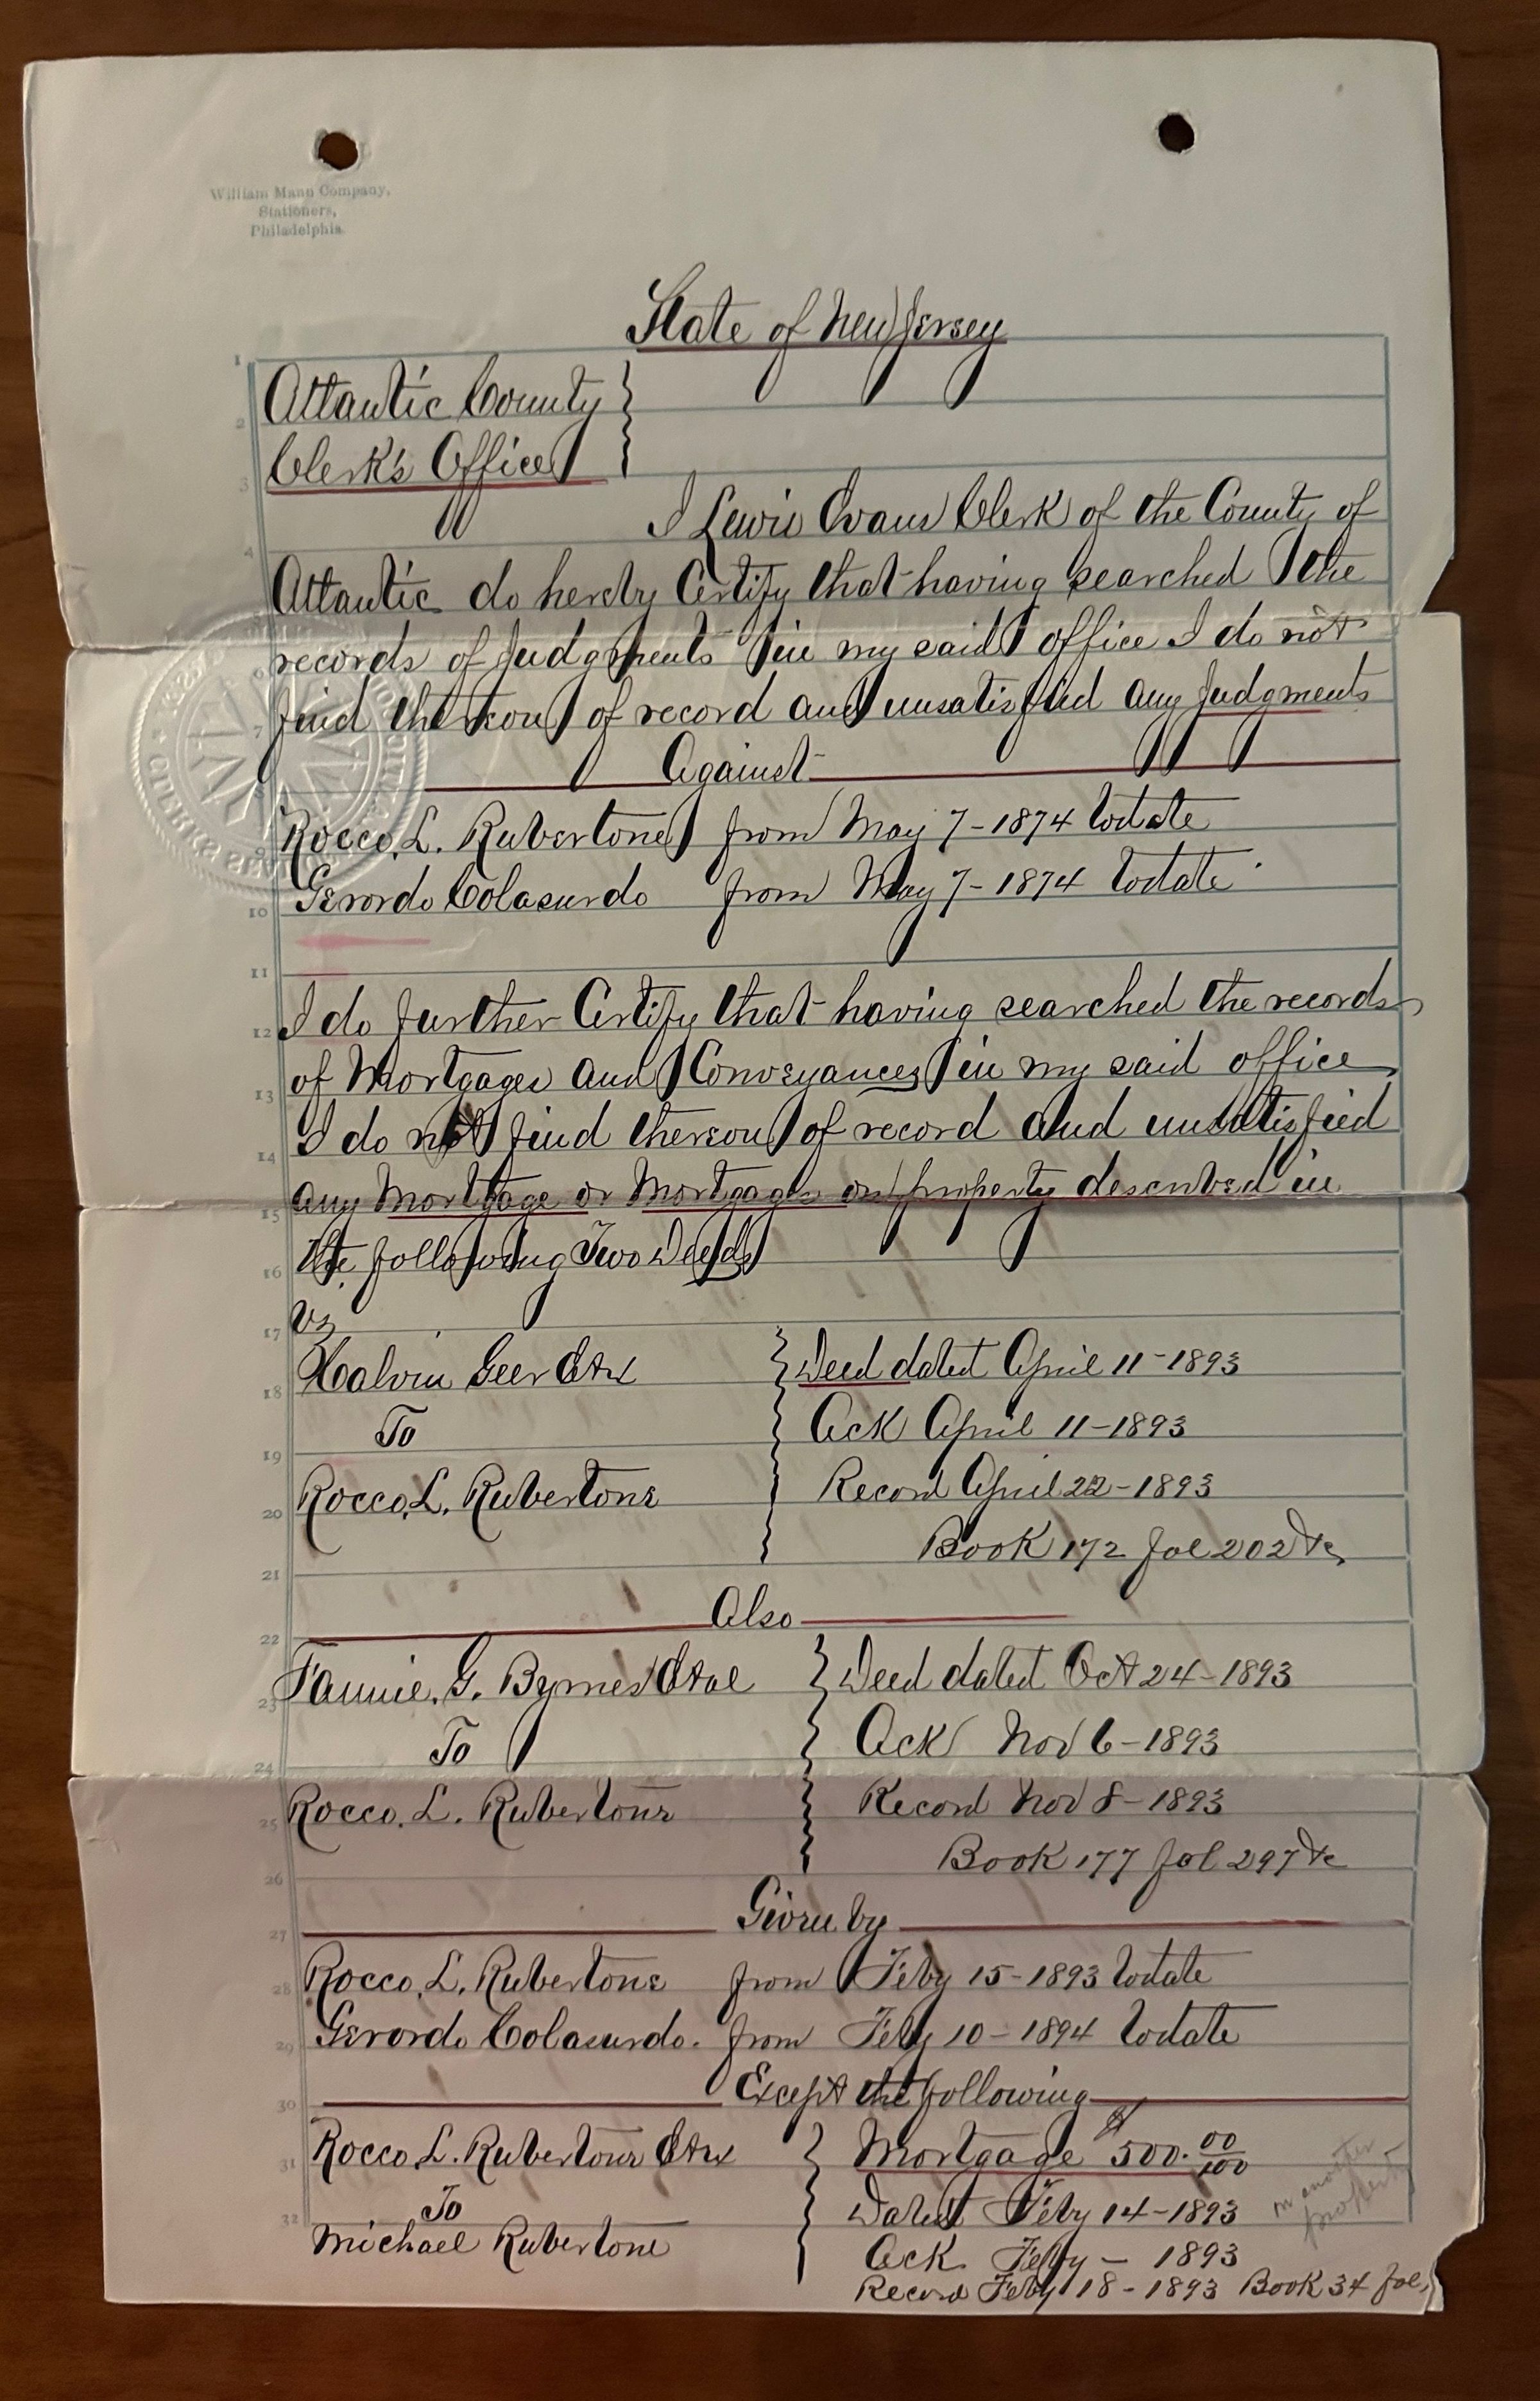 William Mann Company,
Stationers,
Philadelphia.
State of New Jersey
1
Atlantic County
2
Clerk's Office
3
I Lewis Evans Clerk of the County of
4
Atlantic do hereby Certify that having searched the
records of Judgments in my said office I do not
6
find thereon of record and unsatisfied any Judgments
7
Against
8
Rocco. L. Rubertone from May 7-1874 to date
9
Gerardo Colasurdo from May 7-1874 to date
10
11
I do further Certify that having searched the records
12
of Mortgages and Conveyances in my said office
13
I do not find thereon of record and unsatisfied
14
any Mortgage or Mortgages on property described in
15
the following Two Deeds
16
Vz
17
Calvin Geer Etux } Deed dated April 11-1893
18
To Ack April 11-1893
19
Rocco. L. Rubertone Record April 22-1893
20
Book 172 fol 202 &c,
21
Also
22
Fannie. G. Byrnes Etal } Deed dated Oct 24-1893
23
To Ack Nov 6-1893
24
Rocco. L. Rubertone Record Nov 8-1893
25
Book 177 fol 297 &c
26
Given by
27
Rocco. L. Rubertone from Feby 15-1893 to date
28
Gerardo Colasurdo. from Feby 10-1894 to date
29
Except the following
30
Rocco L. Rubertone Etux } Mortgage $500.00/100
31
To Dated Feby 14-1893 on another
32
property
Michael Rubertone Ack. Feby - 1893
Record Feby 18-1893 Book 34 fol,